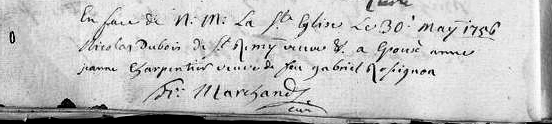 En face de N. M. La Ste Eglise Le 30e May 1756
Nicolas Dubois de St Remy veuve &. a Epousé anne
jeanne Charpentier veuve de feu gabriel Rosignon
Fr. Marchand
curé